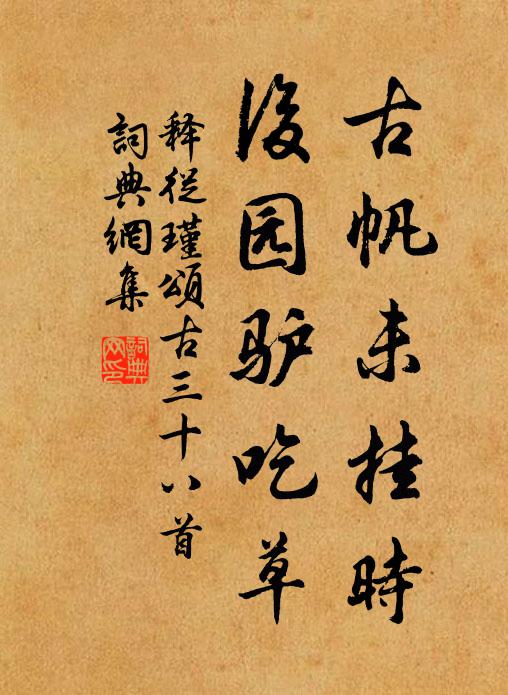 古帆未挂時
後园驴吃草
释從瑾頌古三十八首
詞典網集
詞典
网印